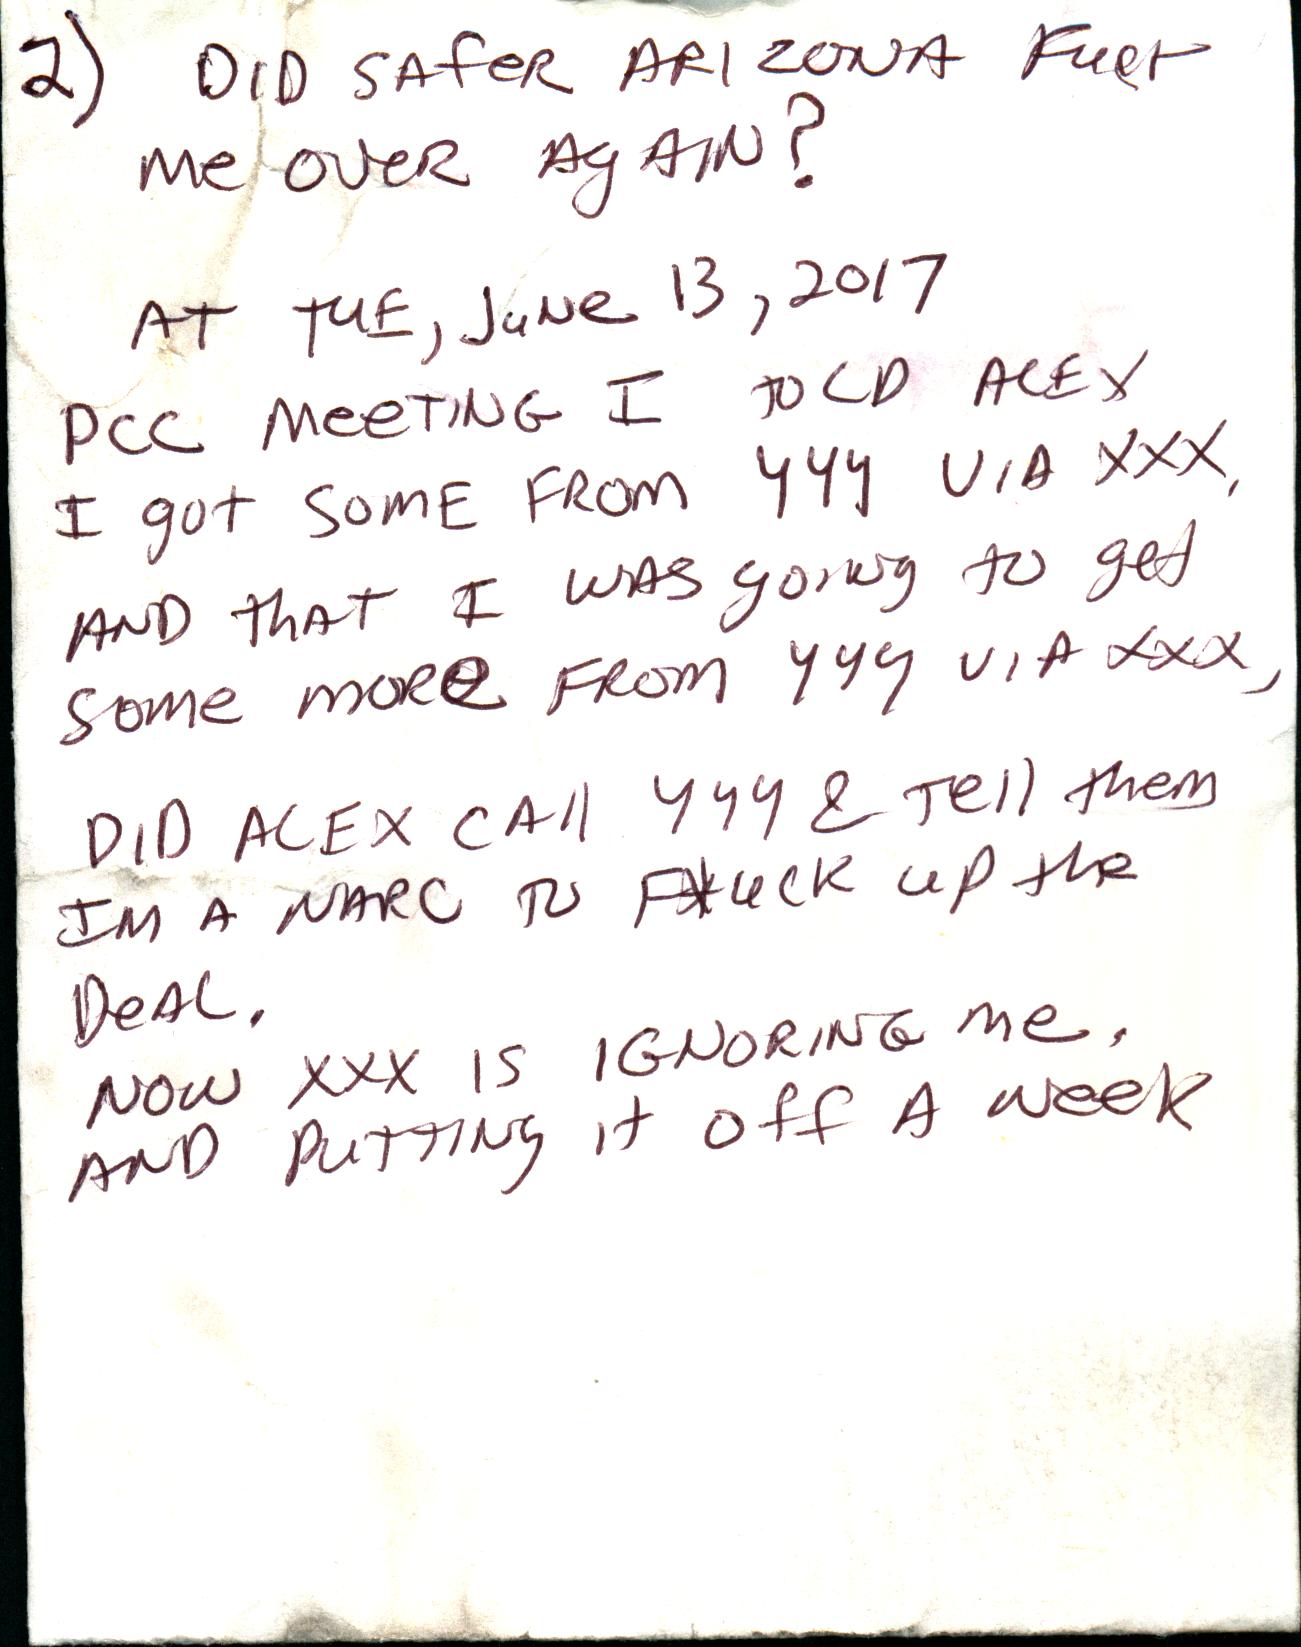 2) DID SAFER ARIZONA Fuck
me OVER AgAIN?
AT TUE, JuNe 13, 2017
PCC MeeTING I TOLD ALEX
I got SOME FROM YYY VIA XXX,
AND tHAT I WAS going to get
Some more FROM YYY VIA XXX,
DID ALEX CAll YYY & Tell them
IM A NARC TO F*uck up the
DeAL.
NOW XXX IS IGNORING me.
AND PUTTINg it off A week